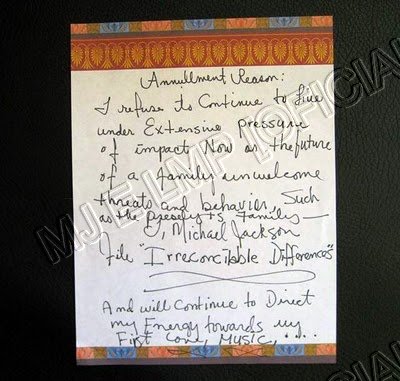 Annullment Reason:
I refuse to Continue to live
under Extensive pressure
of impact Now or the future
of a family unwelcome
threats and behavior, Such
as the family —
I, Michael Jackson
file "Irreconcilable Differences"
And will Continue to Direct
my Energy towards my
First Love, MUSIC, ....
MJ E LMP [OFICIAL
MJ E LMP [OFICIAL